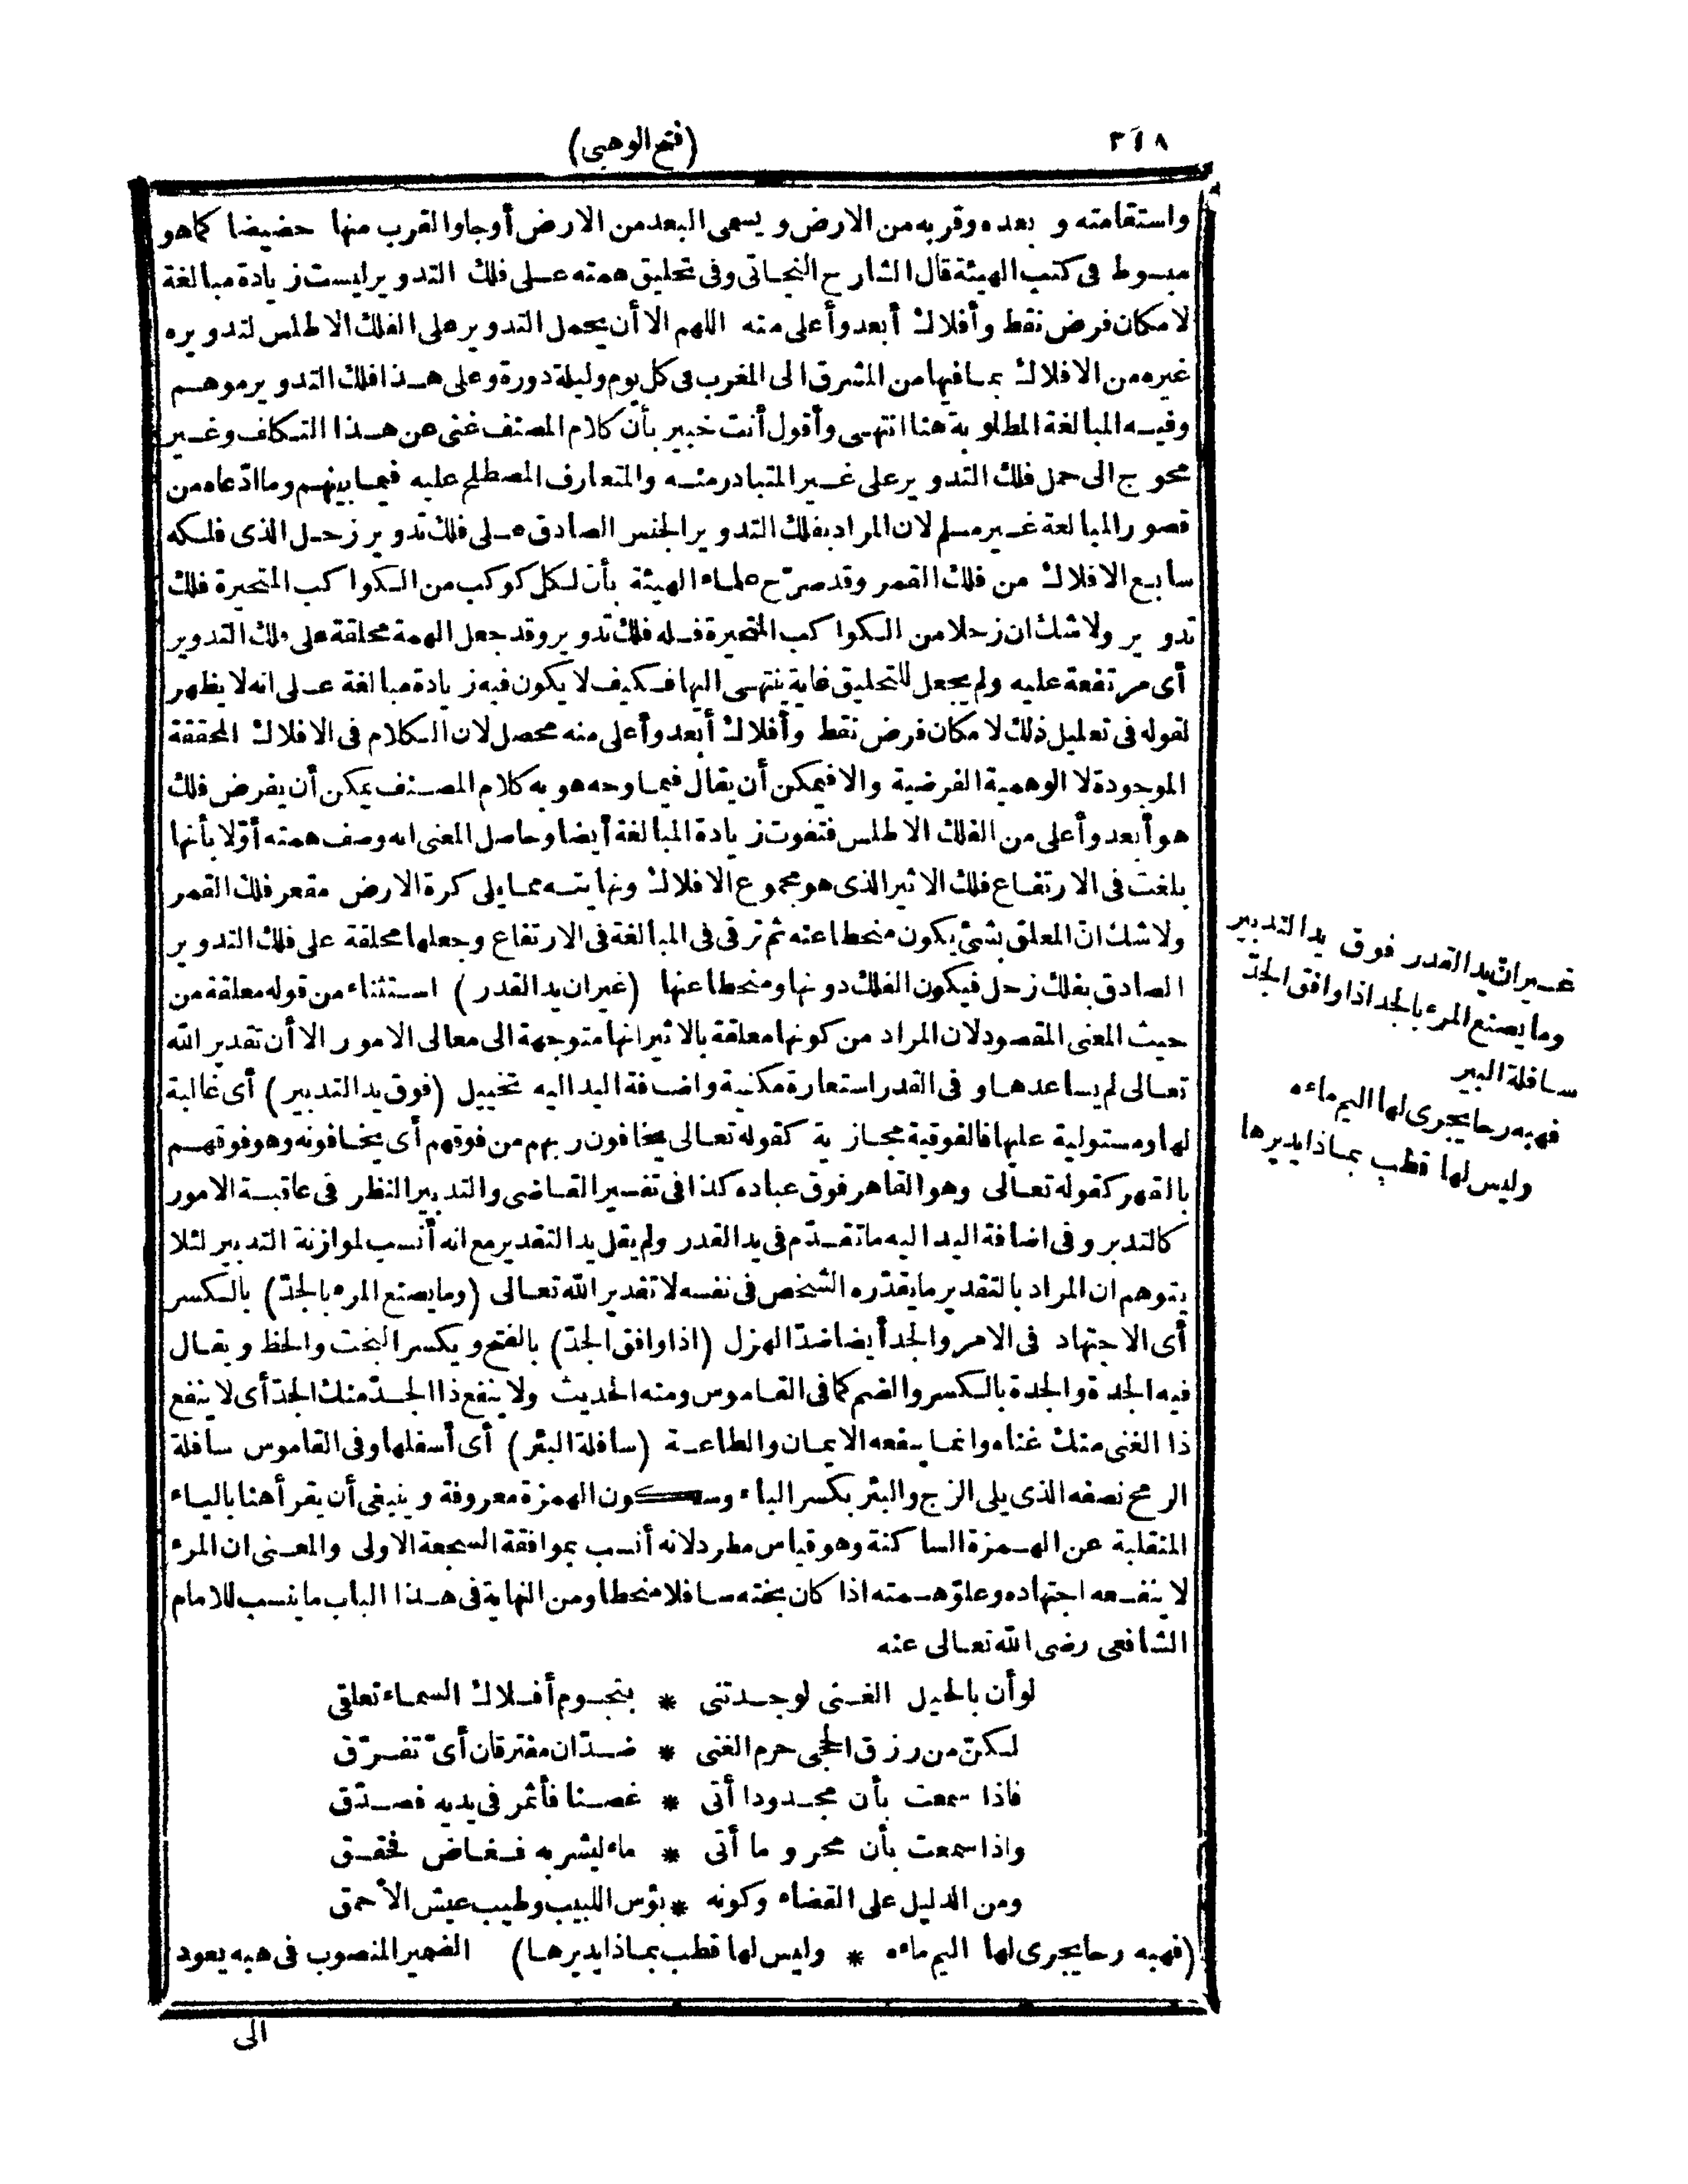 (فتح الوهبى)
٣١٨
واستقامته و بعده وقربه من الارض و يسمى البعد من الارض أوجا والقرب منها حضيضا كما هو
مبسوط فى كتب الهيئة قال الشارح النجاتى وفى تحليق همته على فلك التدوير ليست زيادة مبالغة
لامكان فرض نقط وأفلاك أبعد وأعلى منه اللهم الا أن يحمل التدوير على الفلك الاطلس لتدويره
غيره من الافلاك بما فيها من المشرق الى المغرب فى كل يوم وليلة دورة وعلى هذا فلك التدوير موهم
وفيه المبالغة المطلوبة هنا انتهى وأقول أنت خبير بأن كلام المصنف غنى عن هذا التكلف وغير
محوج الى حمل فلك التدوير على غير المتبادر منه والمتعارف المصطلح عليه فيما بينهم وما ادّعاه من
قصور المبالغة غير مسلم لان المراد بفلك التدوير الجنس الصادق على فلك تدوير زحل الذى فلكه
سابع الافلاك من فلك القمر وقد صرّح علماء الهيئة بأن لكل كوكب من الكواكب المتحيرة فلك
تدوير ولا شك ان زحلا من الكواكب المتحيرة فله فلك تدوير وقد جعل الهمة محلقة على فلك التدوير
أى مرتفعة عليه ولم يجعل للتحليق غاية ينتهى اليها فكيف لا يكون فيه زيادة مبالغة على انه لا يظهر
لقوله فى تعليل ذلك لامكان فرض نقط وأفلاك أبعد وأعلى منه محصل لان الكلام فى الافلاك المحققة
الموجودة لا الوهمية الفرضية والا فيمكن أن يقال فيما وجه هو به كلام المصنف يمكن أن يفرض فلك
هو أبعد وأعلى من الفلك الاطلس فتفوت زيادة المبالغة أيضا وحاصل المعنى انه وصف همته أوّلا بأنها
بلغت فى الارتفاع فلك الاثير الذى هو مجموع الافلاك ونهايته مما يلى كرة الارض مقعر فلك القمر
ولا شك انّ المعلق بشئ يكون منحطا عنه ثم ترقى فى المبالغة فى الارتفاع وجعلها محلقة على فلك التدوير
الصادق بفلك زحل فيكون الفلك دونها ومنحطا عنها (غير ان يد القدر) استثناء من قوله معلقة من
حيث المعنى المقصود لان المراد من كونها معلقة بالاثير انها متوجهة الى معالى الامور الا أن تقدير الله
تعالى لم يساعدها وفى القدر استعارة مكنية واضافة اليد اليه تخييل (فوق يد التدبير) أى غالبة
لها ومستولية عليها فالفوقية مجازية كقوله تعالى يخافون ربهم من فوقهم أى يخافونه وهو فوقهم
بالقهر كقوله تعالى وهو القاهر فوق عباده كذا فى تفسير القاضى والتدبير النظر فى عاقبة الامور
كالتدبر وفى اضافة اليد اليه ما تقدّم فى يد القدر ولم يقل يد التقدير مع انه أنسب لموازنة التدبير لئلا
يتوهم ان المراد بالتقدير ما يقدّره الشخص فى نفسه لا تقدير الله تعالى (وما يصنع المرء بالجدّ) بالكسر
أى الاجتهاد فى الامر والجد أيضا ضدّ الهزل (اذا وافق الجدّ) بالفتح ويكسر البخت والحظ ويقال
فيه الجدة والجدة بالكسر والضم كما فى القاموس ومنه الحديث ولا ينفع ذا الجدّ منك الجدّ أى لا ينفع
ذا الغنى منك غناه وانما ينفعه الايمان والطاعة (سافلة البئر) أى أسفلها وفى القاموس سافلة
الرمح نصفه الذى يلى الزج والبئر بكسر الباء وسكون الهمزة معروفة وينبغى أن يقرأ هنا بالياء
المنقلبة عن الهمزة الساكنة وهو قياس مطرد لانه أنسب بموافقة السجعة الاولى والمعنى ان المرء
لا ينفعه اجتهاده وعلوّ همته اذا كان بخته سافلا منحطا ومن النهاية فى هذا الباب ما ينسب للامام
الشافعى رضى الله تعالى عنه
لو أن بالحيل الغنى لوجدتنى * بنجوم أفلاك السماء تعلقى
لكنّ من رزق الحجى حرم الغنى * ضدّان مفترقان أىّ تفرّق
فاذا سمعت بأن مجدودا أتى * غصنا فأثمر فى يديه فصدّق
واذا سمعت بأن محروما أتى * ماء ليشربه فغاض فحقق
ومن الدليل على القضاء وكونه * بؤس اللبيب وطيب عيش الأحمق
(فهبه رحا يجرى لها اليم ماءه * وليس لها قطب بماذا يديرها) الضمير المنصوب فى هبه يعود
الى
غير انّ يد القدر فوق يد التدبير
وما يصنع المرء بالجد اذا وافق الجدّ
سافلة البير
فهبه رحا يجرى لها اليم ماءه
وليس لها قطب بماذا يديرها